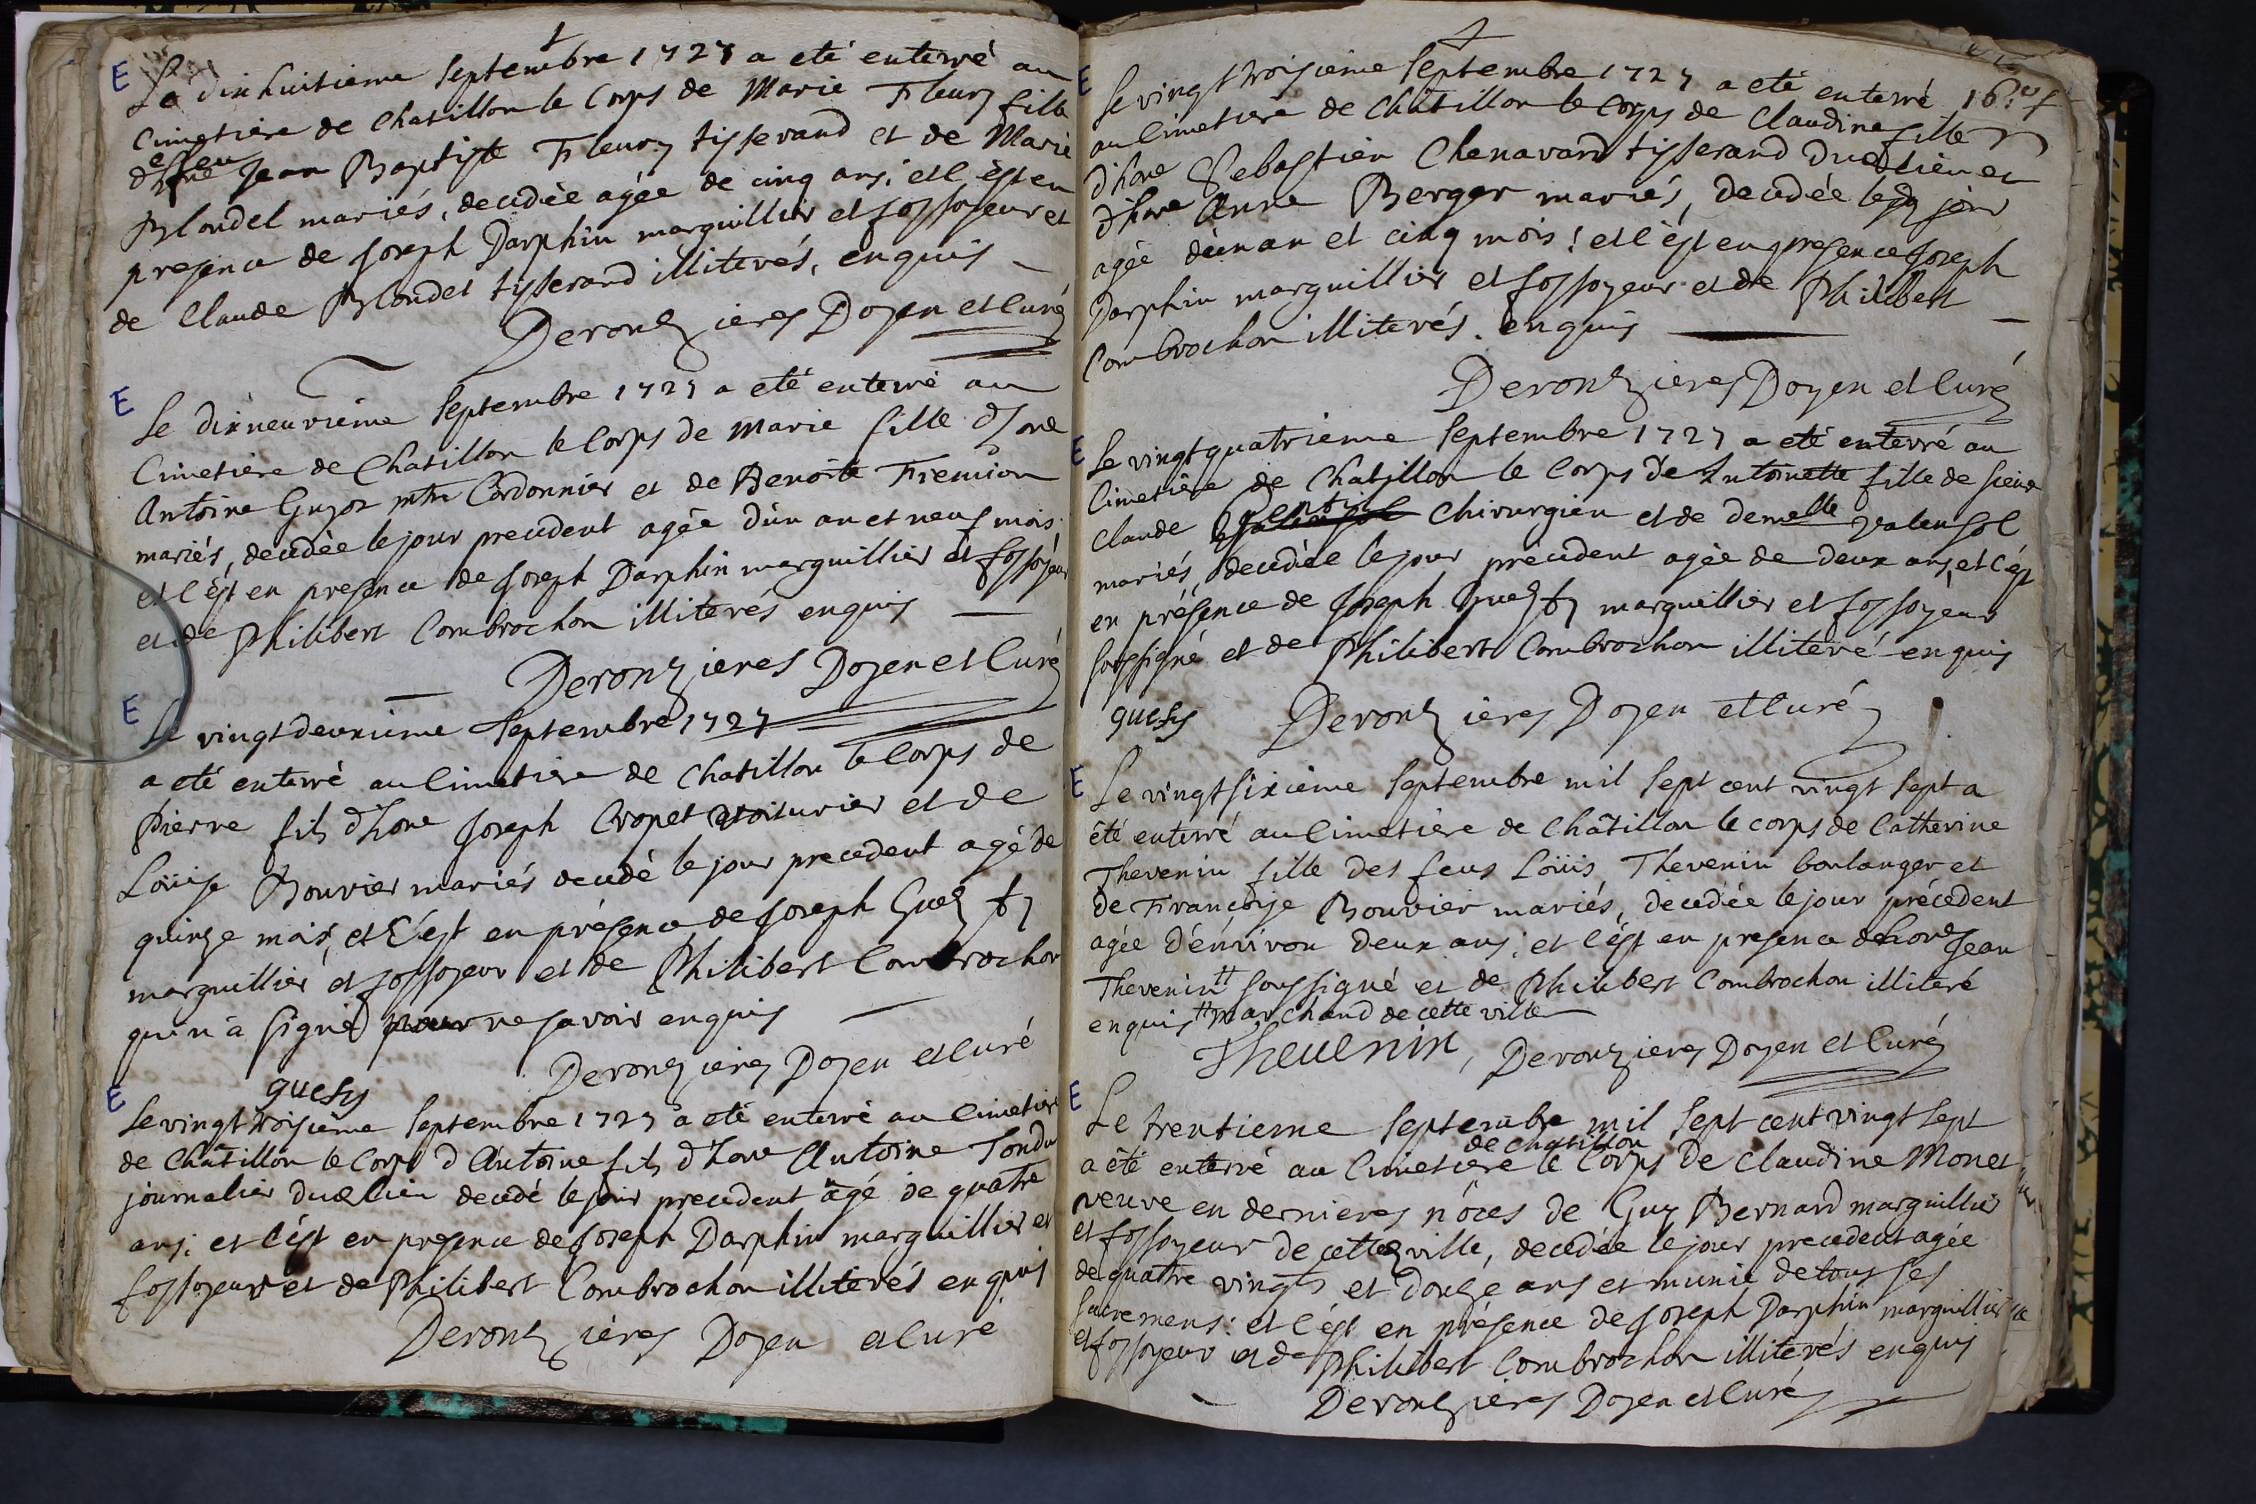 E
Le dixhuitieme Septembre 1727 a eté enterré au
Cimetiere de Chatillon le Corps de Marie Fleury fille
de feu Jean Baptiste Fleury tisserand et de Marie
Blondel mariés, decedée agée de cinq ans; et c'est en
presence de Joseph Darphin marguillier et fossoyeur et
de Claude Blondel tisserand illiterés, enquis
Deronzieres Doyen et Curé
E
Le dixneuvieme Septembre 1727 a eté enterré au
Cimetiere de Chatillon le Corps de Marie fille d'hone
Antoine Guyot mtre Cordonnier et de Benoite Fremion
mariés, decedée le jour precedent agée d'un an et neuf mois
et c'est en presence de Joseph Darphin marguillier et fossoyeur
et de Philibert Combrochon illiterés enquis
Deronzieres Doyen et Curé
E
Le vingtdeuxieme Septembre 1727
a eté enterré au Cimetiere de Chatillon le Corps de
Pierre fils d'hone Joseph Cropet voiturier et de
Loüise Bouvier mariés decedé le jour precedent agé de
quinze mois, et c'est en présence de Joseph Guez
marguillier et fossoyeur et de Philibert Combrochon
qui n'a signé pour ne savoir enquis
Deronzieres Doyen et Curé
guess
E
Le vingt troisieme Septembre 1727 a eté enterré au Cimetiere
de Châtillon le Corps d'Antoine fils d'hone Antoine Tondu
journalier dud lieu decedé le jour precedent agé de quatre
ans; et c'est en presence de Joseph Darphin marguillier et
fossoyeur et de Philibert Combrochon illiterés enquis
Deronzieres Doyen et Curé
E
Le vingt troisieme Septembre 1727 a eté enterré
au Cimetiere de Châtillon le Corps de Claudine fille
d'hone Sebastien Chenavard tisserand dud lieu et
d'hone Anne Berger mariés, decedée led jour
agée d'un an et cinq mois; et c'est en presence Joseph
Darphin marguillier et fossoyeur et de Philibert
Combrochon illiterés. enquis
Deronzieres Doyen et Curé
E
Le vingtquatrieme Septembre 1727 a eté enterré au
Cimetiere de Chatillon le Corps de Antoinette fille de sieur
Claude Gentil Chirurgien et de demelle Valensol
mariés, decedée le jour précedent agée de deux ans, et c'est
en présence de Joseph Guez marguillier et fossoyeur
soussigné et de Philibert Combrochon illiteré enquis
guess Deronzieres Doyen et Curé
E
Le vingtsixieme Septembre mil sept cent vingt sept a
êté enterré au Cimetiere de Châtillon le corps de Catherine
Thevenin fille des feus Loüis Thevenin boulanger et
de Françoise Bouvier mariés, decedée le jour précedent
agée d'environ deux ans; et c'est en presence de hone Jean
Thevenin soussigné et de Philibert Combrochon illiteré
enquis marchand de cette ville
Thevenin, Deronzieres Doyen et Curé
E
Le trentieme Septembre mil sept cent vingt sept
de Chatillon
a été enterré au Cimetiere le Corps de Claudine Monet
veuve en dernieres nôces de Guy Bernard marguillier
et fossoyeur de cette ville, decedée le jour precedent agée
de quatre vingts et douze ans et munie de tous ses
sacremens: et c'est en présence de Joseph Darphin marguillier
et fossoyeur et de Philibert Combrochon illiterés enquis
Deronzieres Doyen et Curé